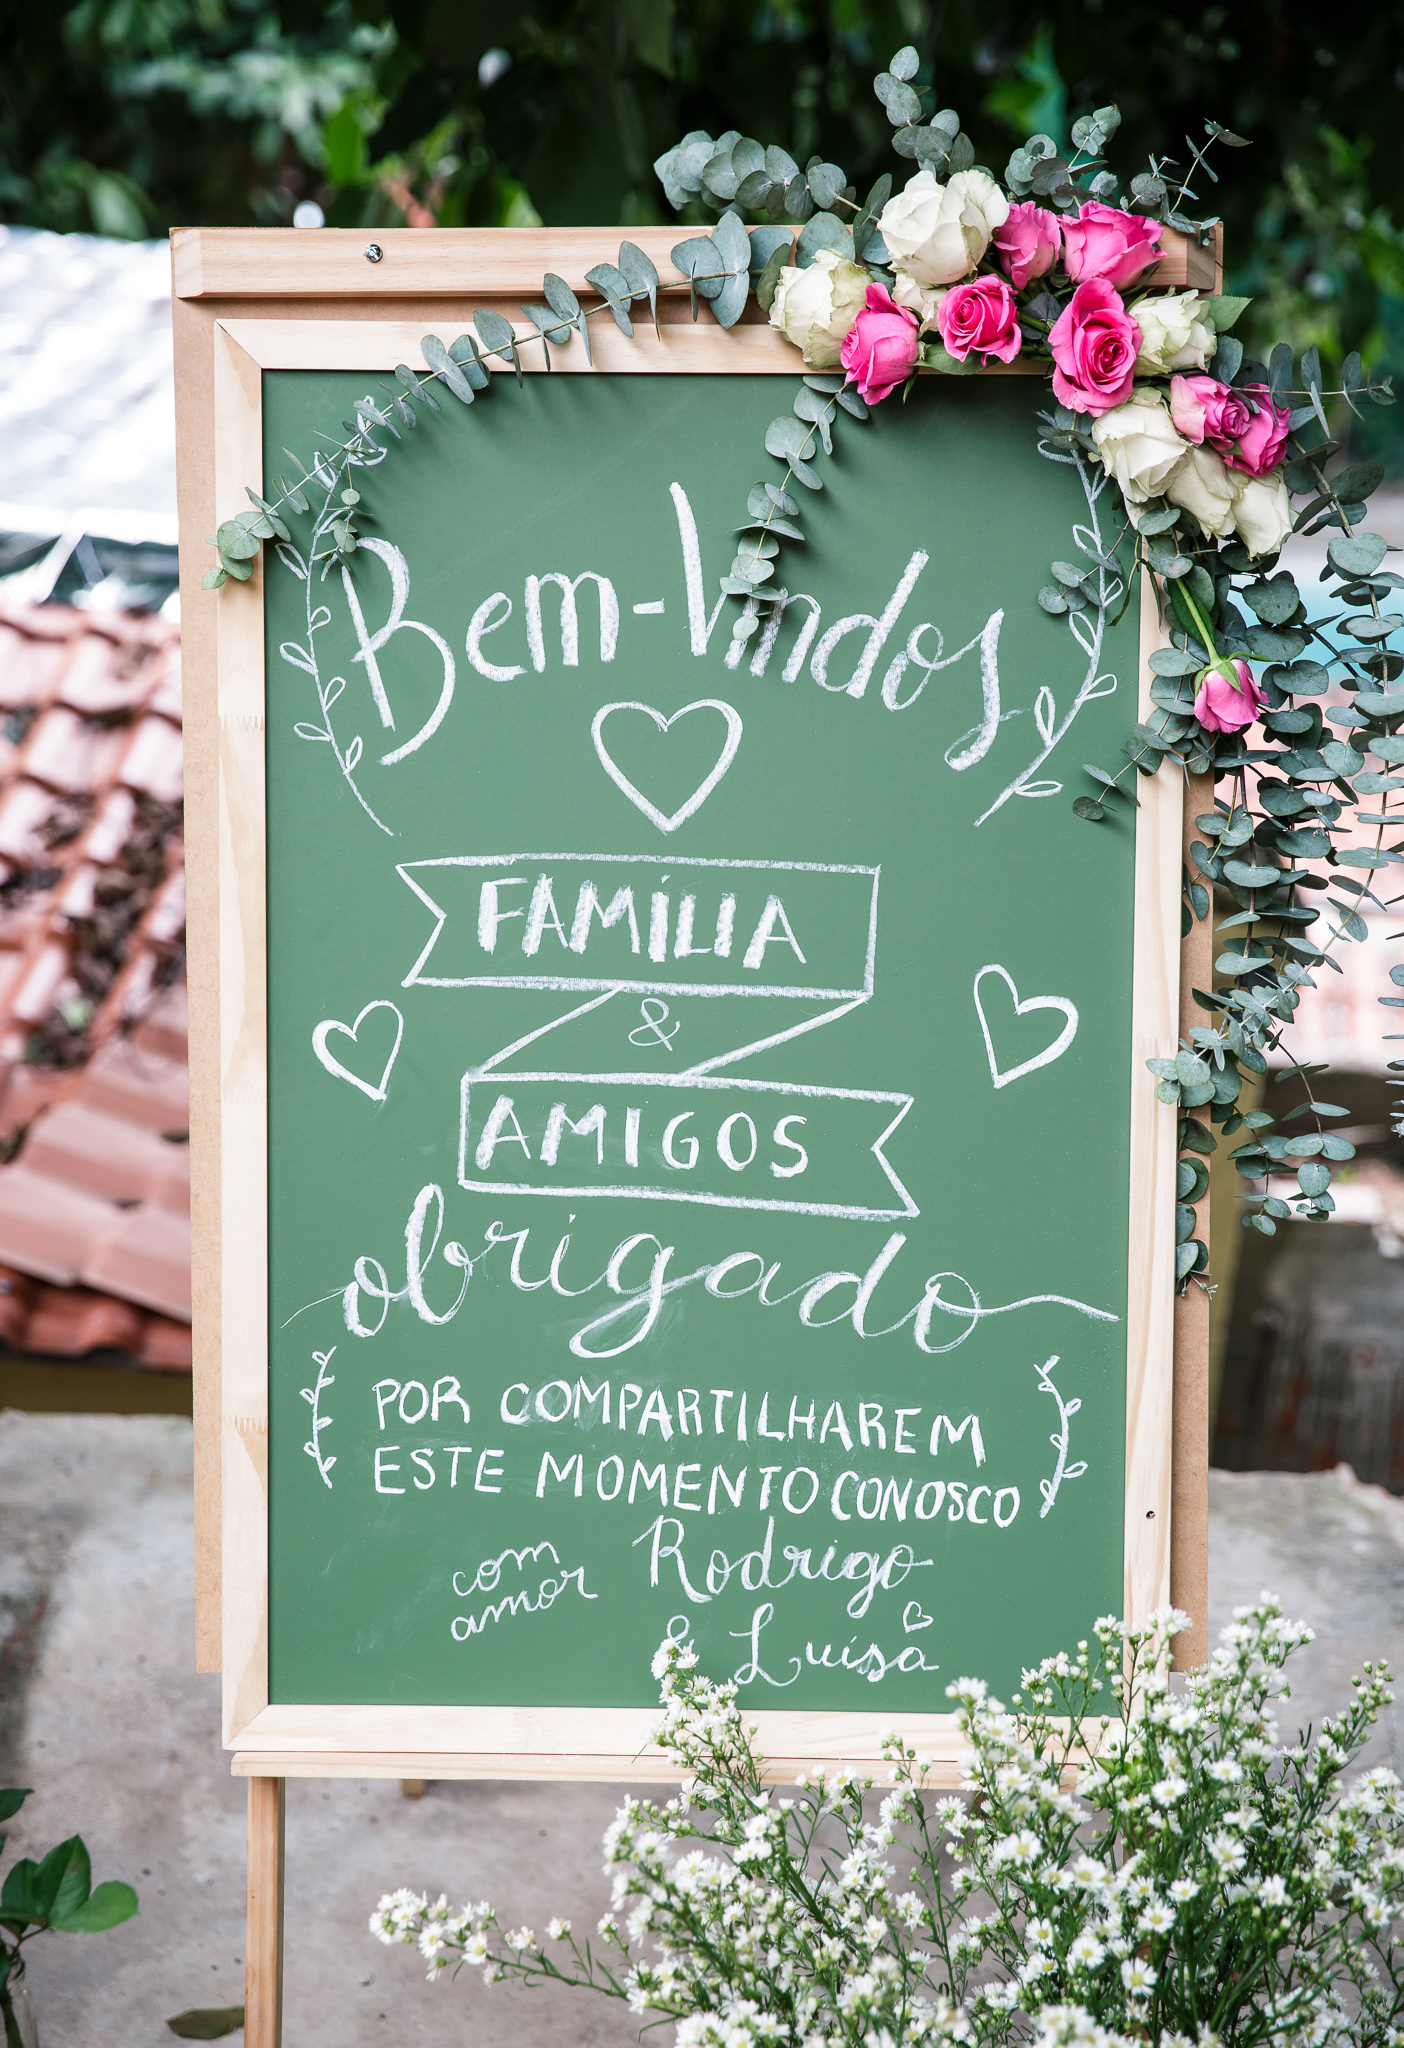 Bem-Vindos
FAMÍLIA
&
AMIGOS
obrigado
POR COMPARTILHAREM
ESTE MOMENTO CONOSCO
com
amor
Rodrigo
& Luísa